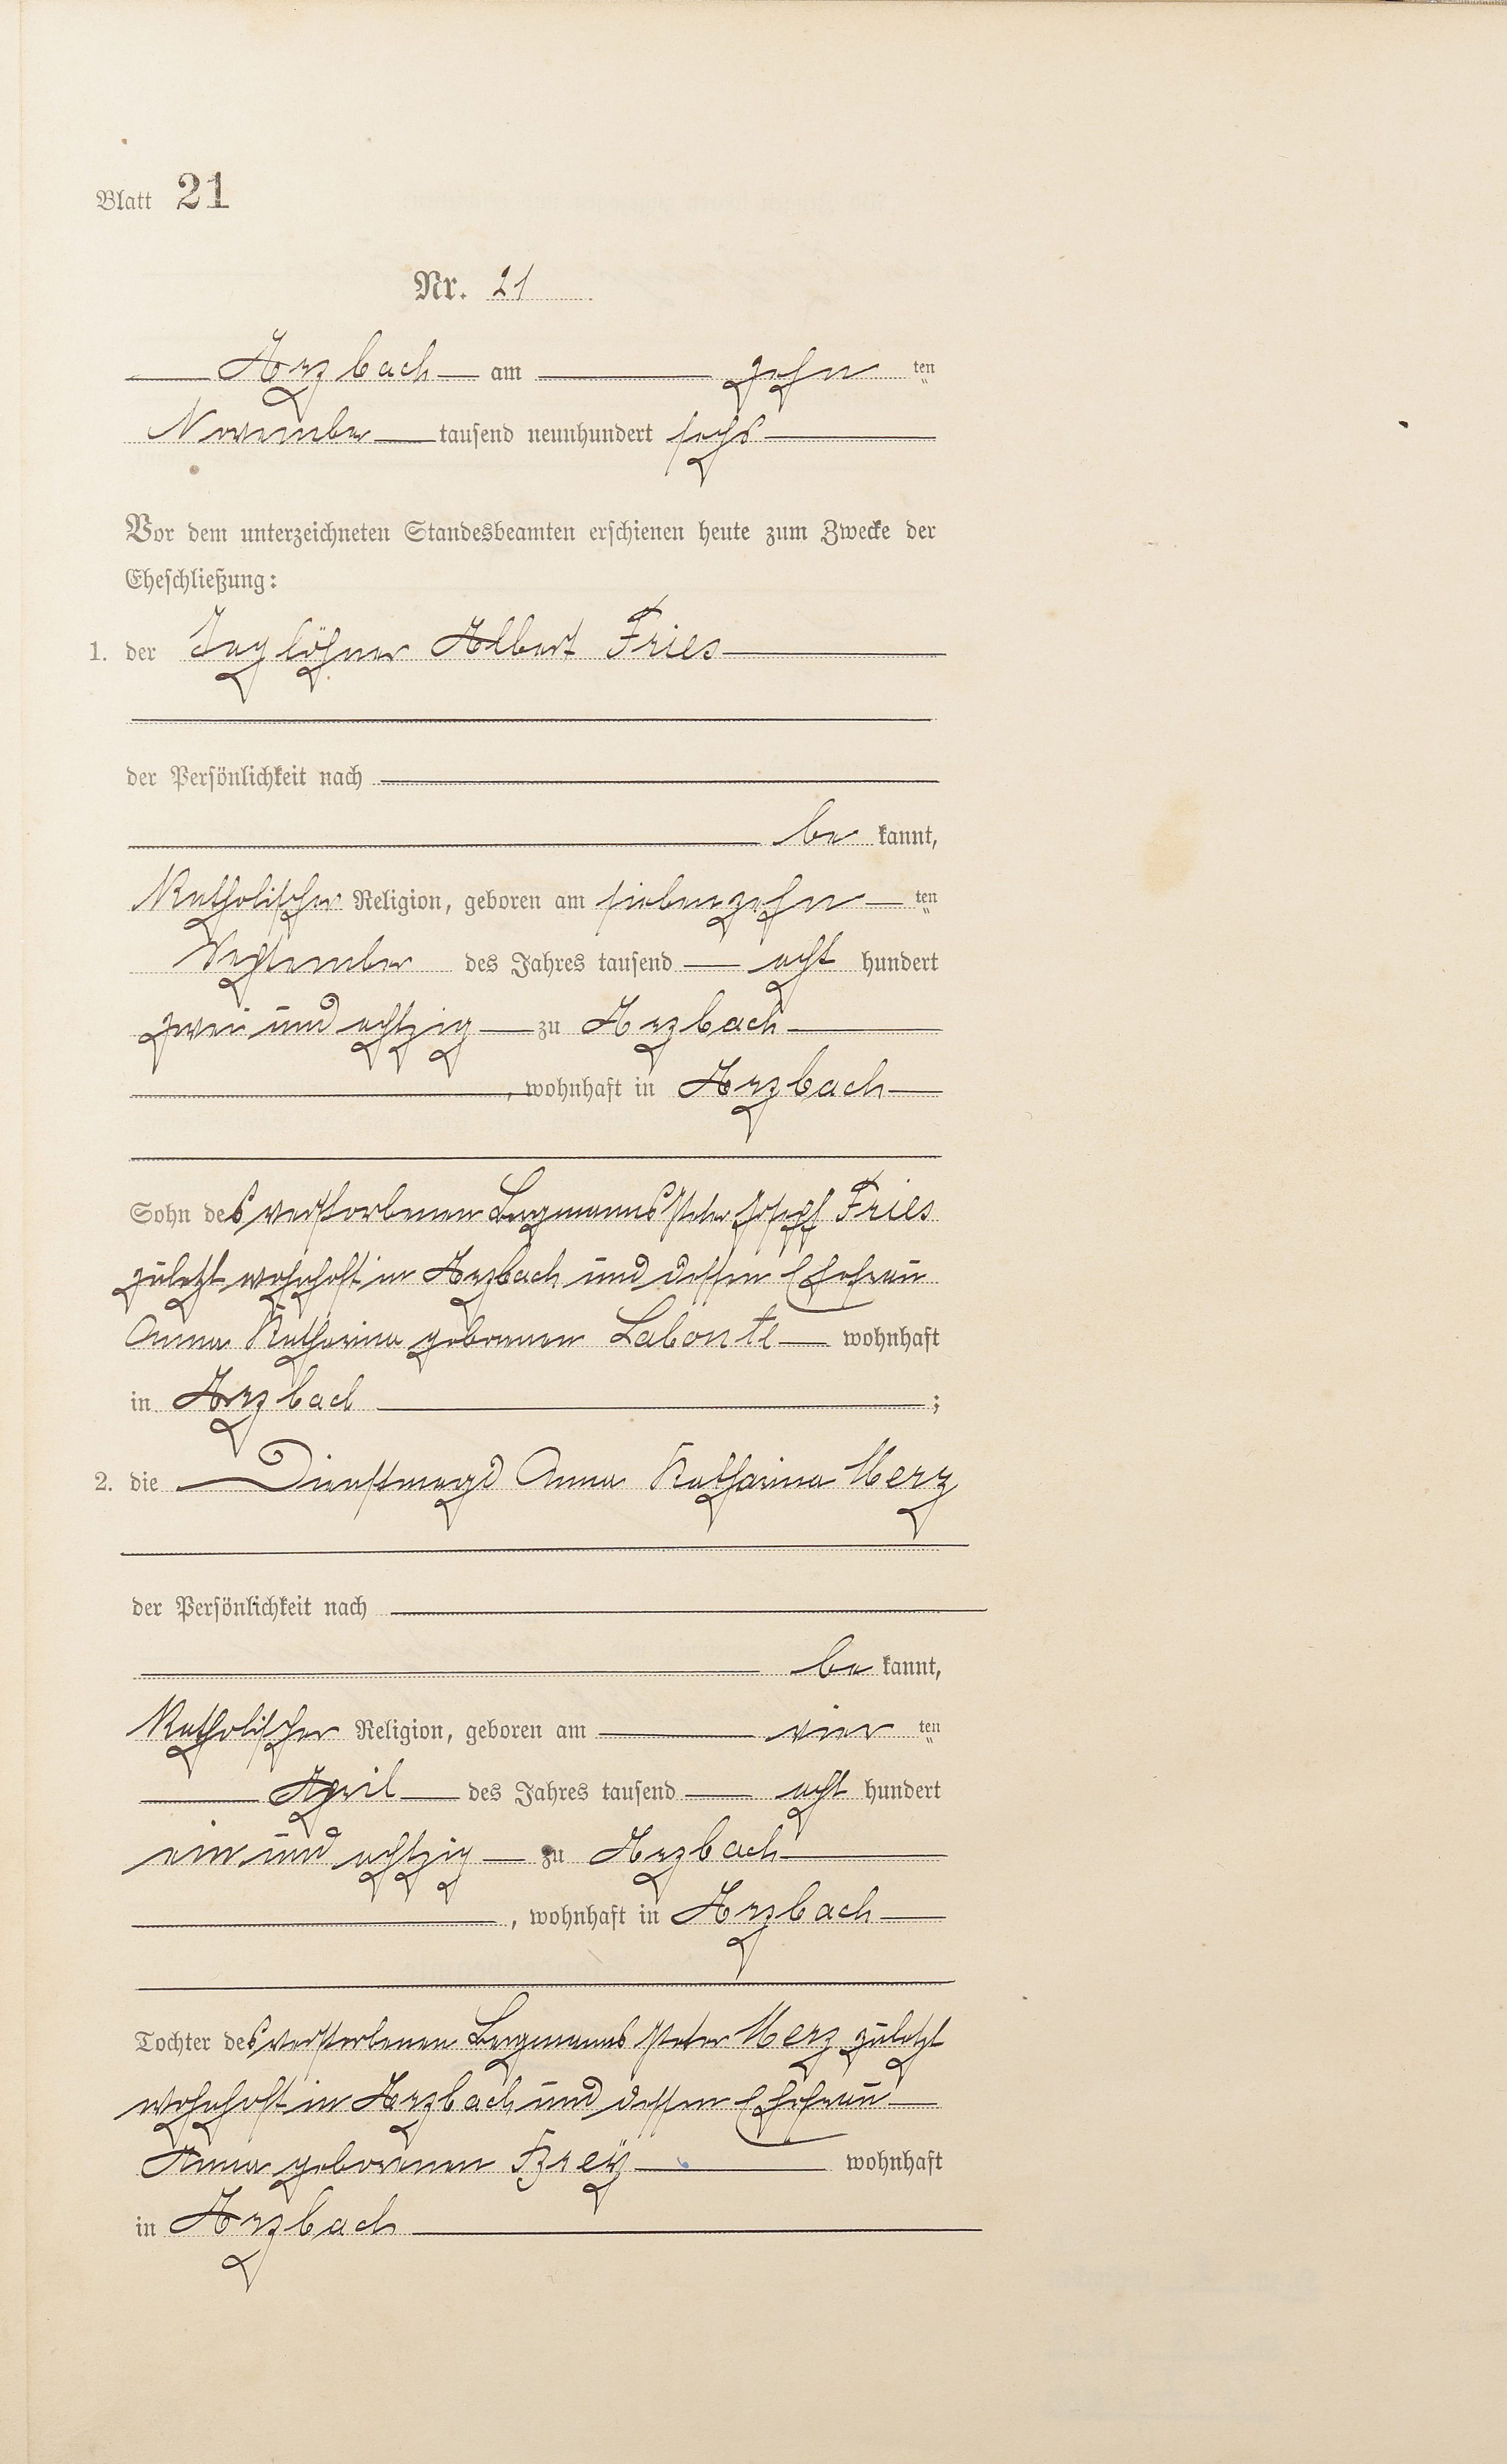 Blatt 21
Nr. 21
Arzbach am zehn ten
November tausend neunhundert sechs
Vor dem unterzeichneten Standesbeamten erschienen heute zum Zwecke der
Eheschließung:
1. der Taglöhner Albert Fries
der Persönlichkeit nach
be kannt,
Katholischer Religion, geboren am siebenzehn ten
September des Jahres tausend acht hundert
zwei und achtzig zu Arzbach
, wohnhaft in Arzbach
Sohn des verstorbenen Bergmanns Peter Joseph Fries
zuletzt wohnhaft in Arzbach und dessen Ehefrau
Anna Katharina geborenen Labonte wohnhaft
in Arzbach ;
2. die Dienstmagd Anna Katharina Merz
der Persönlichkeit nach
be kannt,
Katholischer Religion, geboren am vier ten
April des Jahres tausend acht hundert
ein und achtzig zu Arzbach
, wohnhaft in Arzbach
Tochter des verstorbenen Bergmanns Peter Merz zuletzt
wohnhaft in Arzbach und dessen Ehefrau
Anna geborenen Freÿ wohnhaft
in Arzbach